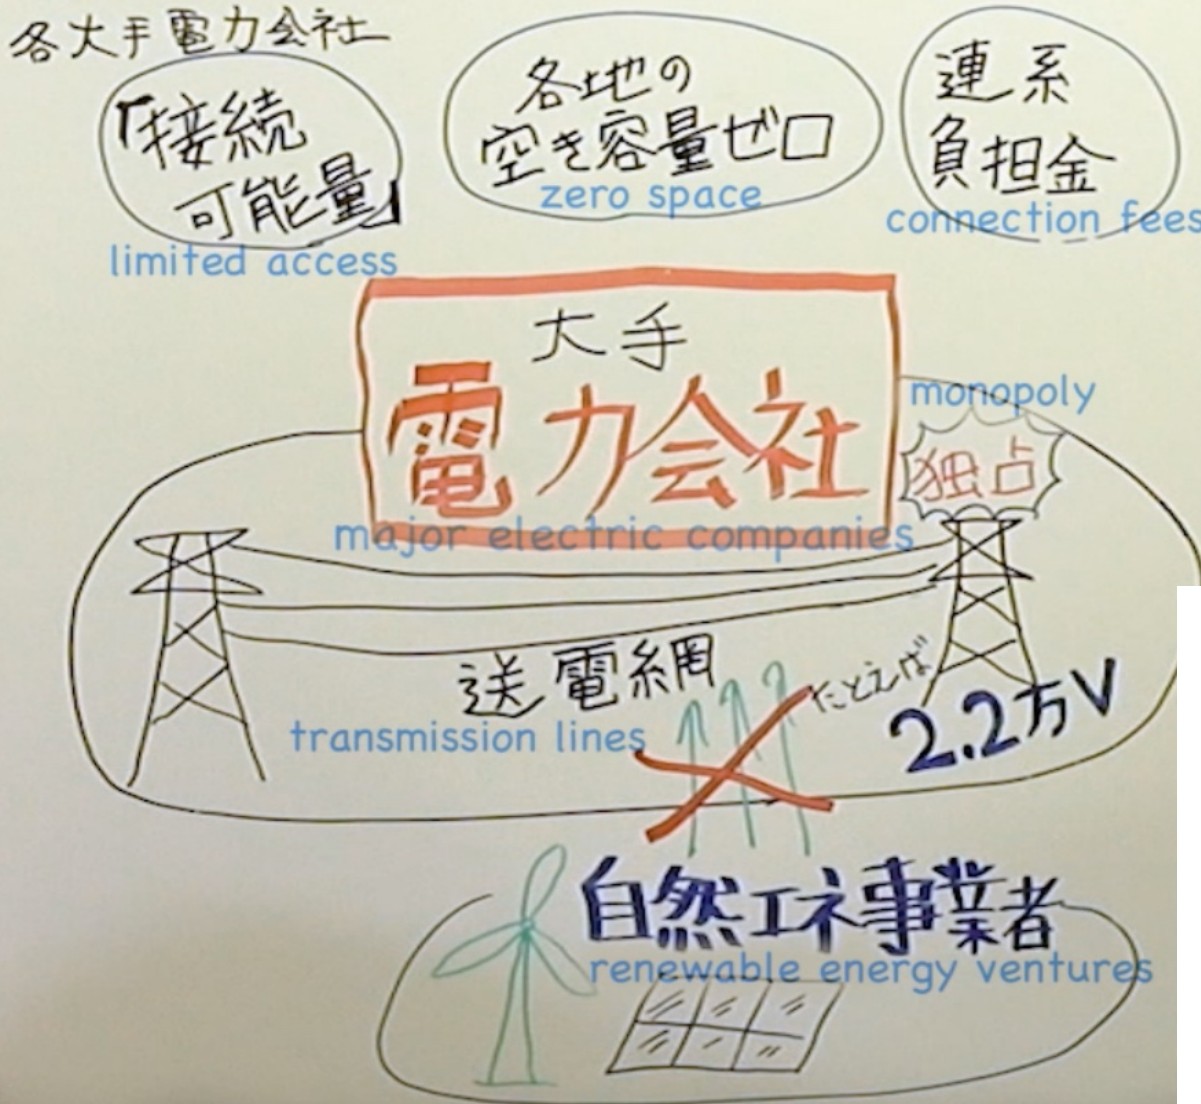 各大手電力会社
「接続
可能量」
limited access
各地の
空き容量ゼロ
zero space
連系
負担金
connection fees
大手
電力会社
major electric companies
monopoly
独占
送電網
transmission lines
たとえば
2.2万V
自然エネ事業者
renewable energy ventures